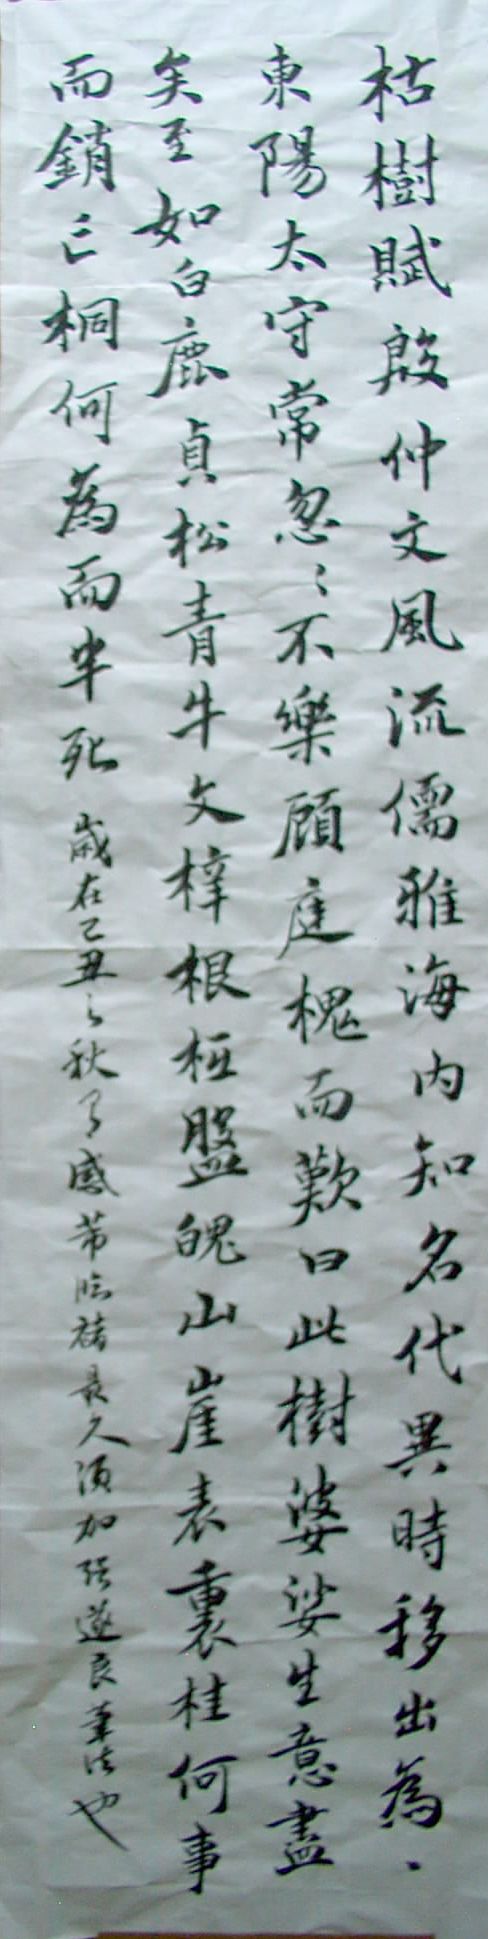 枯樹賦殷仲文風流儒雅海内知名代異時移出為、
東陽太守常忽〻不樂顧庭槐而歎曰此樹婆娑生意盡
矣至如白鹿貞松青牛文梓根柢盤魄山崖表裏桂何事
而銷亡桐何為而半死
歲在己丑之秋了感芾臨褚最久須加強遂良筆法也